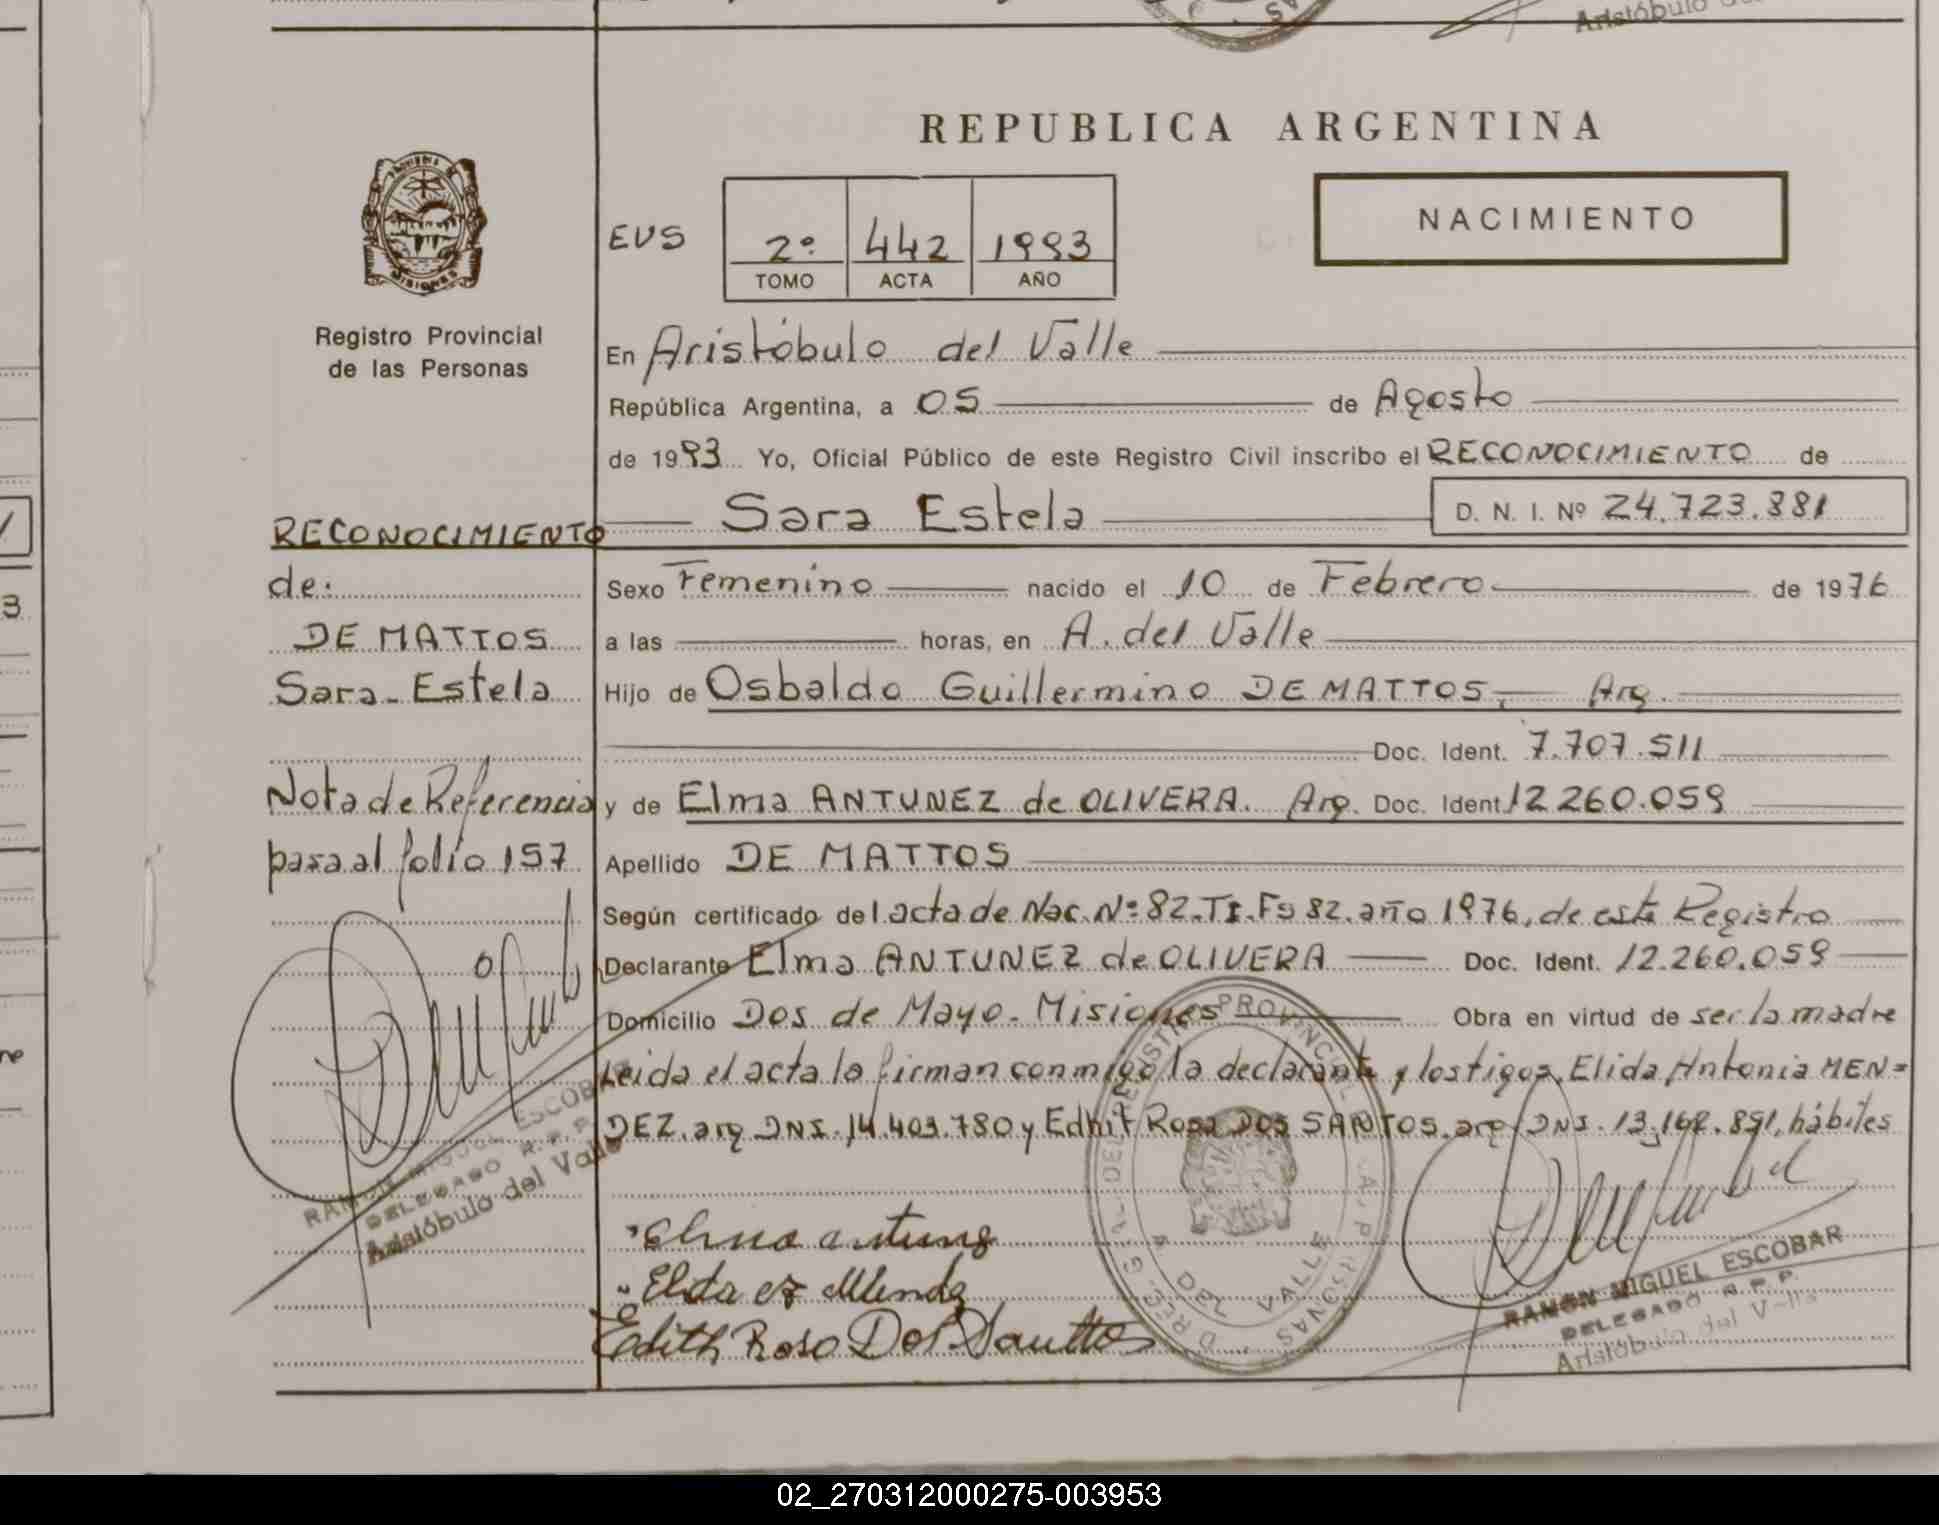 REPUBLICA ARGENTINA
NACIMIENTO
EVS
2º 442 1993
TOMO ACTA AÑO
Registro Provincial
de las Personas
En Aristóbulo del Valle
República Argentina, a 05 de Agosto
de 1993 Yo, Oficial Público de este Registro Civil inscribo el RECONOCIMIENTO de
Sara Estela D. N. I. Nº 24.723.881
RECONOCIMIENTO
de:
DE MATTOS
Sara Estela
Nota de Referencia
pasa al folio 157
Sexo Femenino nacido el 10 de Febrero de 1976
a las horas, en A. del Valle
Hijo de Osbaldo Guillermino DE MATTOS, Arg.
Doc. Ident. 7.707.511
y de Elma ANTUNEZ de OLIVERA. Arg. Doc. Ident. 12 260.059
Apellido DE MATTOS
Según certificado del acta de Nac. Nº 82. TI. Fº 82. año 1976, de este Registro
Declarante Elma ANTUNEZ de OLIVERA Doc. Ident. 12.260.059
Domicilio Dos de Mayo - Misiones Obra en virtud de ser la madre
Leida el acta la firman conmigo la declarante y los tigos, Elida Antonia MEN=
DEZ. arg DNI. 14.403.780 y Edhit Rosa DOS SANTOS. arg DNI. 13.168.891, hábiles
RAMON MIGUEL ESCOBAR
DELEGADO R.P.P.
Aristóbulo del Valle
Edith Rosa Dos
A DEL VALLE
RAMON MIGUEL ESCOBAR
DELEGADO R.P.P.
Aristóbulo del Valle
02_270312000275-003953